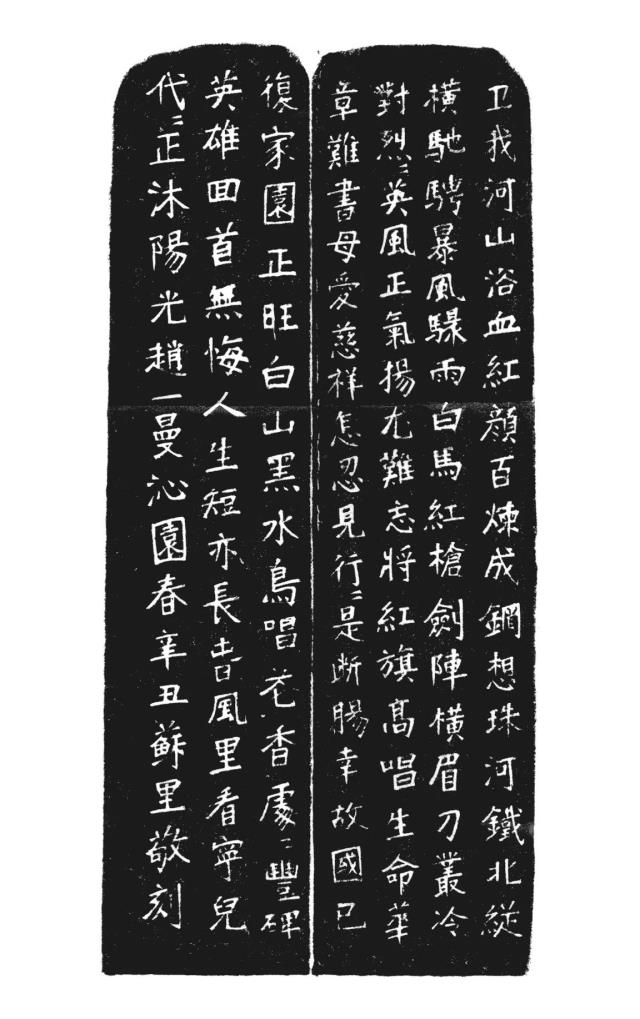 卫我河山浴血紅顔百煉成鋼想珠河鐵北縱
横馳騁暴風驟雨白馬紅槍劍陣横眉刀叢冷
對烈〻英風正氣揚尤難忘將紅旗髙唱生命華
章難書母愛慈祥怎忍見行〻是斷腸幸故國已
復家園正旺白山黑水鳥唱花香處〻豐碑
英雄回首無悔人生短亦長春風里看寧兒
代〻正沐陽光趙一曼沁園春辛丑蘇里敬刻